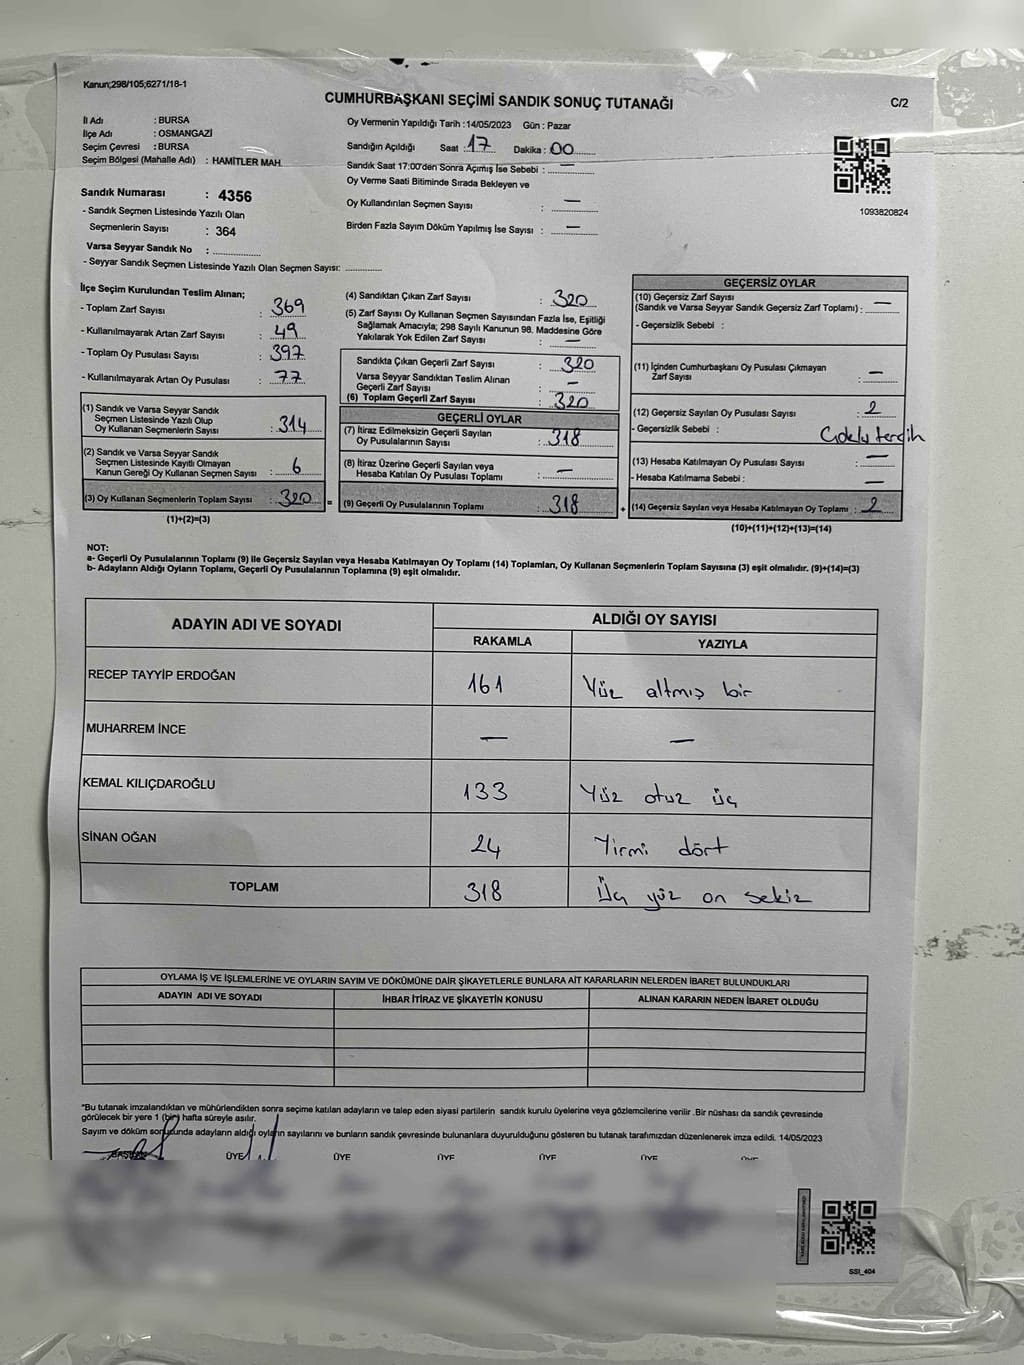 Kanun;298/105;6271/18-1
CUMHURBAŞKANI SEÇİMİ SANDIK SONUÇ TUTANAĞI
C/2
İl Adı : BURSA
İlçe Adı : OSMANGAZİ
Seçim Çevresi : BURSA
Seçim Bölgesi (Mahalle Adı) : HAMİTLER MAH.
Sandık Numarası : 4356
- Sandık Seçmen Listesinde Yazılı Olan
Seçmenlerin Sayısı : 364
Varsa Seyyar Sandık No :
- Seyyar Sandık Seçmen Listesinde Yazılı Olan Seçmen Sayısı:
Oy Vermenin Yapıldığı Tarih :14/05/2023 Gün : Pazar
Sandığın Açıldığı Saat : 17 Dakika : 00
Sandık Saat 17:00'den Sonra Açımış İse Sebebi : —
Oy Verme Saati Bitiminde Sırada Bekleyen ve
Oy Kullandırılan Seçmen Sayısı : —
Birden Fazla Sayım Döküm Yapılmış İse Sayısı : —
1093820824
İlçe Seçim Kurulundan Teslim Alınan;
- Toplam Zarf Sayısı : 369
- Kullanılmayarak Artan Zarf Sayısı : 49
- Toplam Oy Pusulası Sayısı : 397
- Kullanılmayarak Artan Oy Pusulası : 77
(1) Sandık ve Varsa Seyyar Sandık
Seçmen Listesinde Yazılı Olup
Oy Kullanan Seçmenlerin Sayısı : 314
(2) Sandık ve Varsa Seyyar Sandık
Seçmen Listesinde Kayıtlı Olmayan
Kanun Gereği Oy Kullanan Seçmen Sayısı : 6
(3) Oy Kullanan Seçmenlerin Toplam Sayısı : 320 =
(1)+(2)=(3)
(4) Sandıktan Çıkan Zarf Sayısı : 320
(5) Zarf Sayısı Oy Kullanan Seçmen Sayısından Fazla İse, Eşitliği
Sağlamak Amacıyla; 298 Sayılı Kanunun 98. Maddesine Göre
Yakılarak Yok Edilen Zarf Sayısı : —
Sandıkta Çıkan Geçerli Zarf Sayısı : 320
Varsa Seyyar Sandıktan Teslim Alınan
Geçerli Zarf Sayısı : —
(6) Toplam Geçerli Zarf Sayısı : 320
GEÇERLİ OYLAR
(7) İtiraz Edilmeksizin Geçerli Sayılan
Oy Pusulalarının Sayısı : 318
(8) İtiraz Üzerine Geçerli Sayılan veya
Hesaba Katılan Oy Pusulası Toplamı : —
(9) Geçerli Oy Pusulalarının Toplamı : 318 +
GEÇERSİZ OYLAR
(10) Geçersiz Zarf Sayısı
(Sandık ve Varsa Seyyar Sandık Geçersiz Zarf Toplamı) : —
- Geçersizlik Sebebi :
(11) İçinden Cumhurbaşkanı Oy Pusulası Çıkmayan
Zarf Sayısı : —
(12) Geçersiz Sayılan Oy Pusulası Sayısı : 2
- Geçersizlik Sebebi : Çoklu tercih
(13) Hesaba Katılmayan Oy Pusulası Sayısı : —
- Hesaba Katılmama Sebebi : —
(14) Geçersiz Sayılan veya Hesaba Katılmayan Oy Toplamı : 2
(10)+(11)+(12)+(13)=(14)
NOT:
a- Geçerli Oy Pusulalarının Toplamı (9) ile Geçersiz Sayılan veya Hesaba Katılmayan Oy Toplamı (14) Toplamları, Oy Kullanan Seçmenlerin Toplam Sayısına (3) eşit olmalıdır. (9)+(14)=(3)
b- Adayların Aldığı Oyların Toplamı, Geçerli Oy Pusulalarının Toplamına (9) eşit olmalıdır.
ADAYIN ADI VE SOYADI
ALDIĞI OY SAYISI
RAKAMLA YAZIYLA
RECEP TAYYİP ERDOĞAN 161 Yüz altmış bir
MUHARREM İNCE — —
KEMAL KILIÇDAROĞLU 133 Yüz otuz üç
SİNAN OĞAN 24 Yirmi dört
TOPLAM 318 Üç yüz on sekiz
OYLAMA İŞ VE İŞLEMLERİNE VE OYLARIN SAYIM VE DÖKÜMÜNE DAİR ŞİKAYETLERLE BUNLARA AİT KARARLARIN NELERDEN İBARET BULUNDUKLARI
ADAYIN ADI VE SOYADI İHBAR İTİRAZ VE ŞİKAYETİN KONUSU ALINAN KARARIN NEDEN İBARET OLDUĞU
*Bu tutanak imzalandıktan ve mühürlendikten sonra seçime katılan adayların ve talep eden siyasi partilerin sandık kurulu üyelerine veya gözlemcilerine verilir .Bir nüshası da sandık çevresinde
görülecek bir yere 1 (bir) hafta süreyle asılır.
Sayım ve döküm sonucunda adayların aldığı oyların sayılarını ve bunların sandık çevresinde bulunanlara duyurulduğunu gösteren bu tutanak tarafımızdan düzenlenerek imza edildi. 14/05/2023
BAŞKAN ÜYE ÜYE ÜYE ÜYE ÜYE
SSI_404